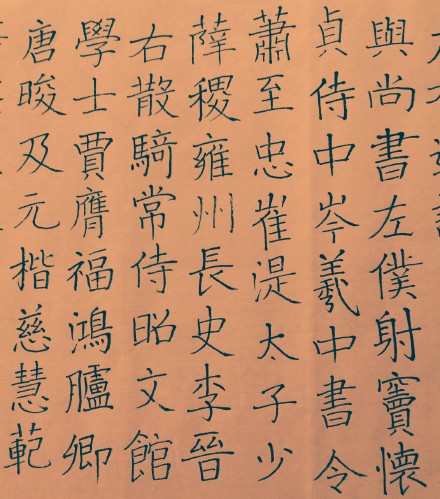 與尚書左僕射竇懷
貞侍中岑羲中書令
蕭至忠崔湜太子少
薛稷雍州長史李晉
右散騎常侍昭文館
學士賈膺福鴻臚卿
唐晙及元楷慈慧範